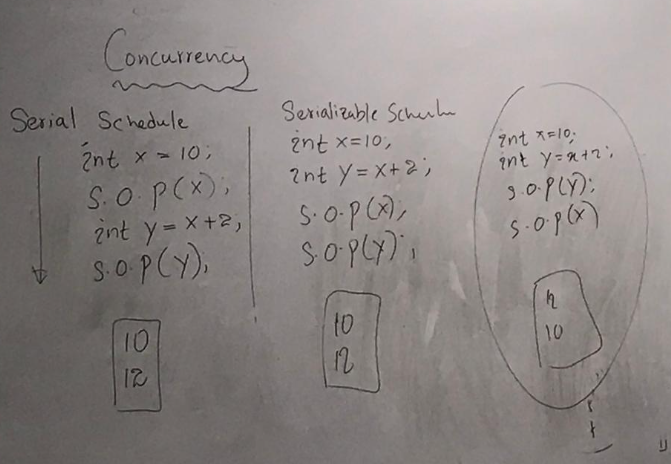 Concurrency
Serial Schedule
int x = 10;
S.O.P(x);
int y = x+2,
S.O.P(y),
10
12
Serializable
int x=10,
int y = x+2;
S.O.P(x),
S.O.P(y);
10
12
int x=10;
int y=x+2;
S.O.P(y);
S.O.P(x)
10